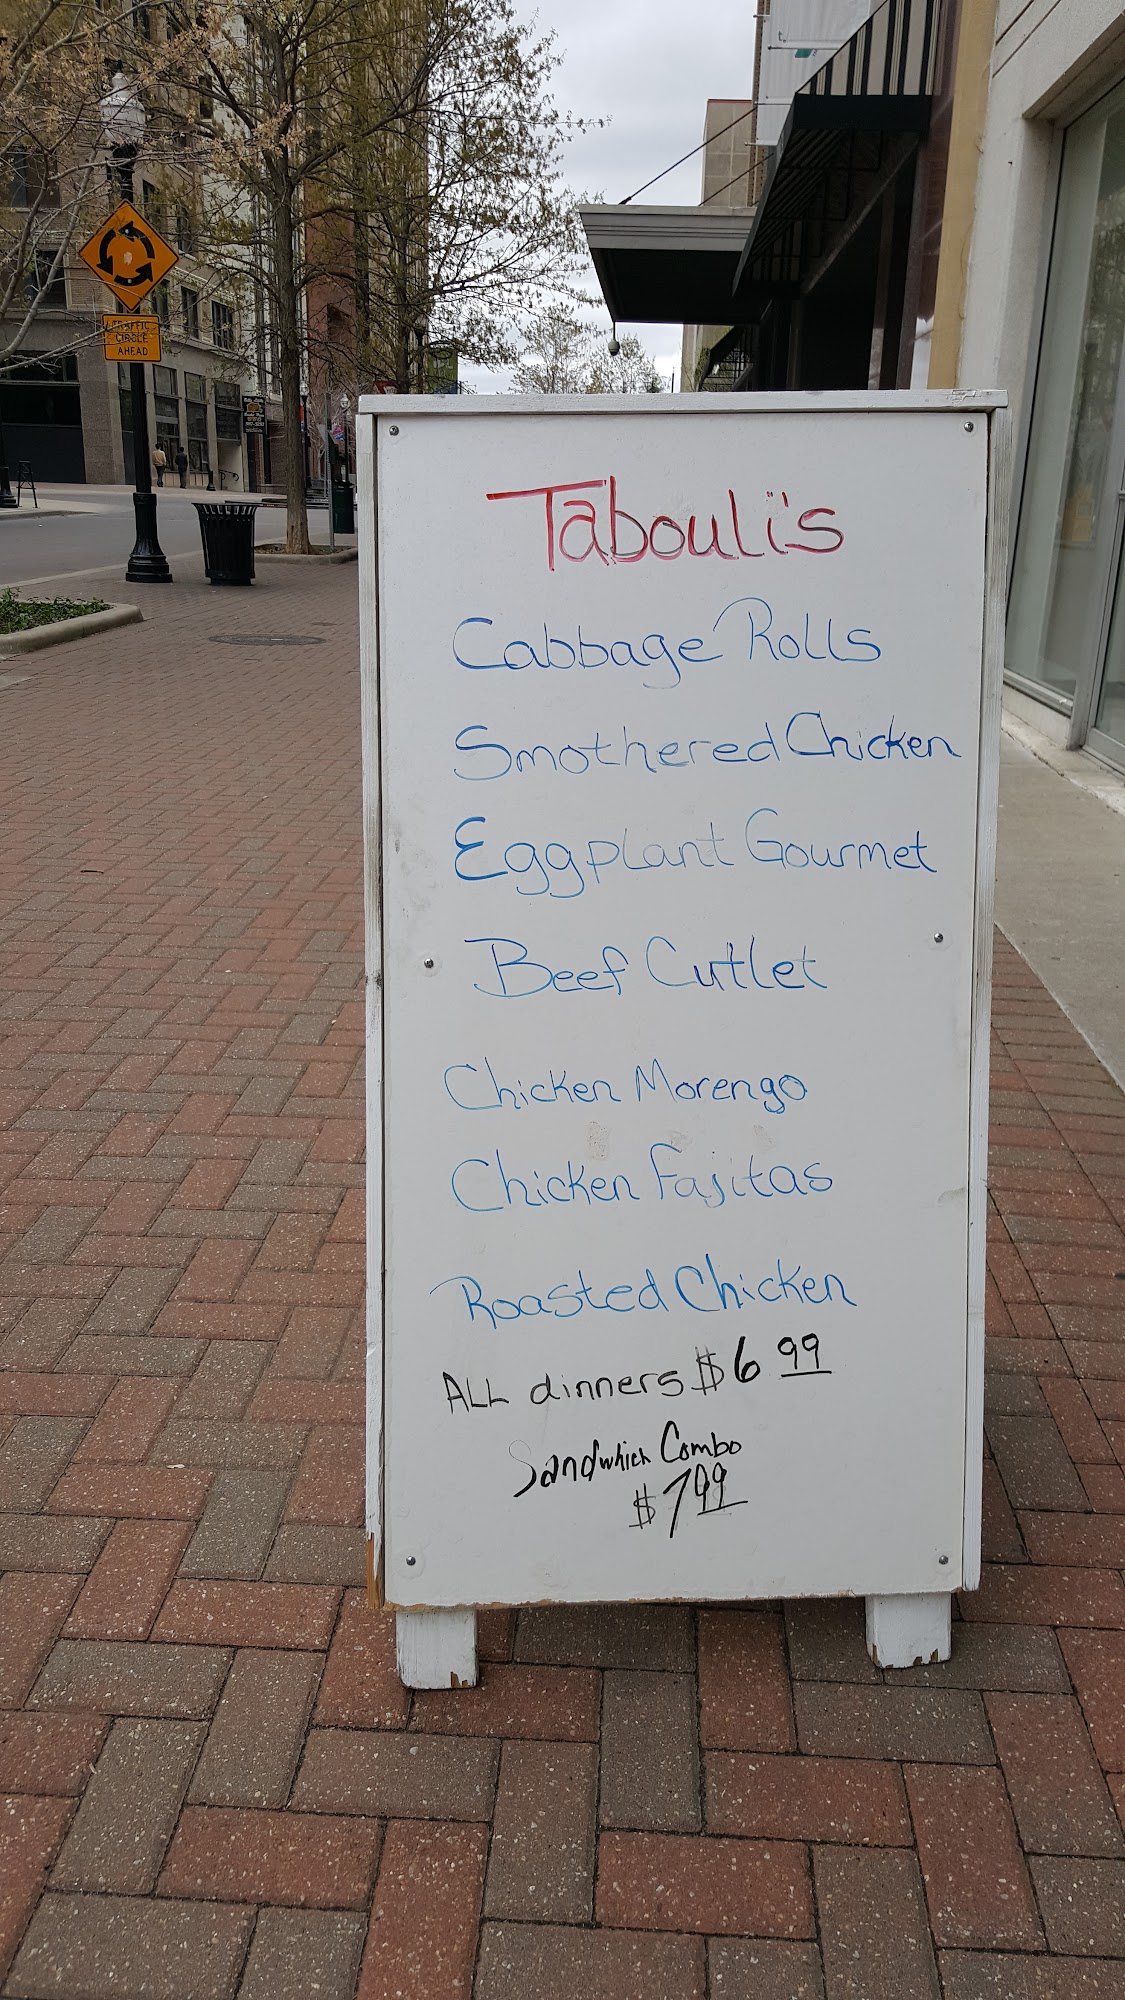 TRAFFIC
CIRCLE
AHEAD
Tabouli's
Cabbage Rolls
Smothered Chicken
Eggplant Gourmet
Beef Cutlet
Chicken Morengo
Chicken Fajitas
Roasted Chicken
ALL dinners $6 99
Sandwhich Combo
$7 99